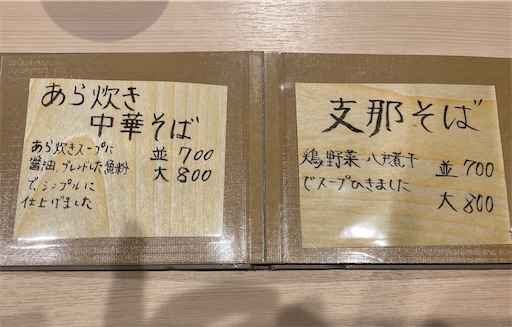 あら炊き
中華そば
あら炊きスープに
醤油、ブレンドした魚粉
でシンプルに
仕上げました
並 700
大 800
支那そば
鶏、野菜、八戸煮干
でスープひきました
並 700
大 800